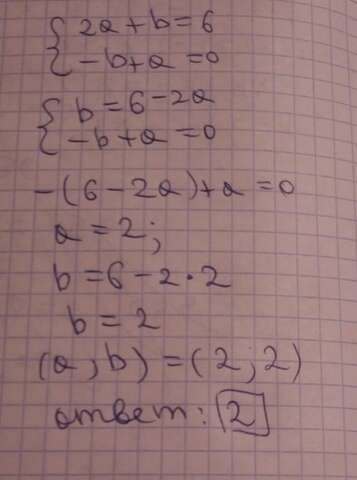 2a + b = 6
-b + a = 0
b = 6 - 2a
-b + a = 0
-(6 - 2a) + a = 0
a = 2;
b = 6 - 2 · 2
b = 2
(a, b) = (2; 2)
ответ: 2